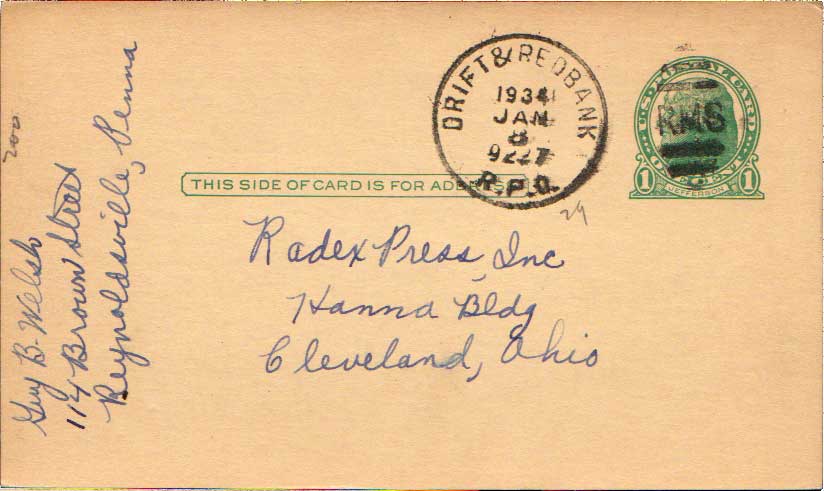 DRIFT & REDBANK
1934
JAN
8
9227
R.P.O.
U.S. POSTAL CARD
RMS
1 CENT 1
JEFFERSON
THIS SIDE OF CARD IS FOR ADDRESS
Radex Press, Inc
Hanna Bldg
Cleveland, Ohio
29
200
Guy B. Welsh
114 Brown Street
Reynoldsville, Penna